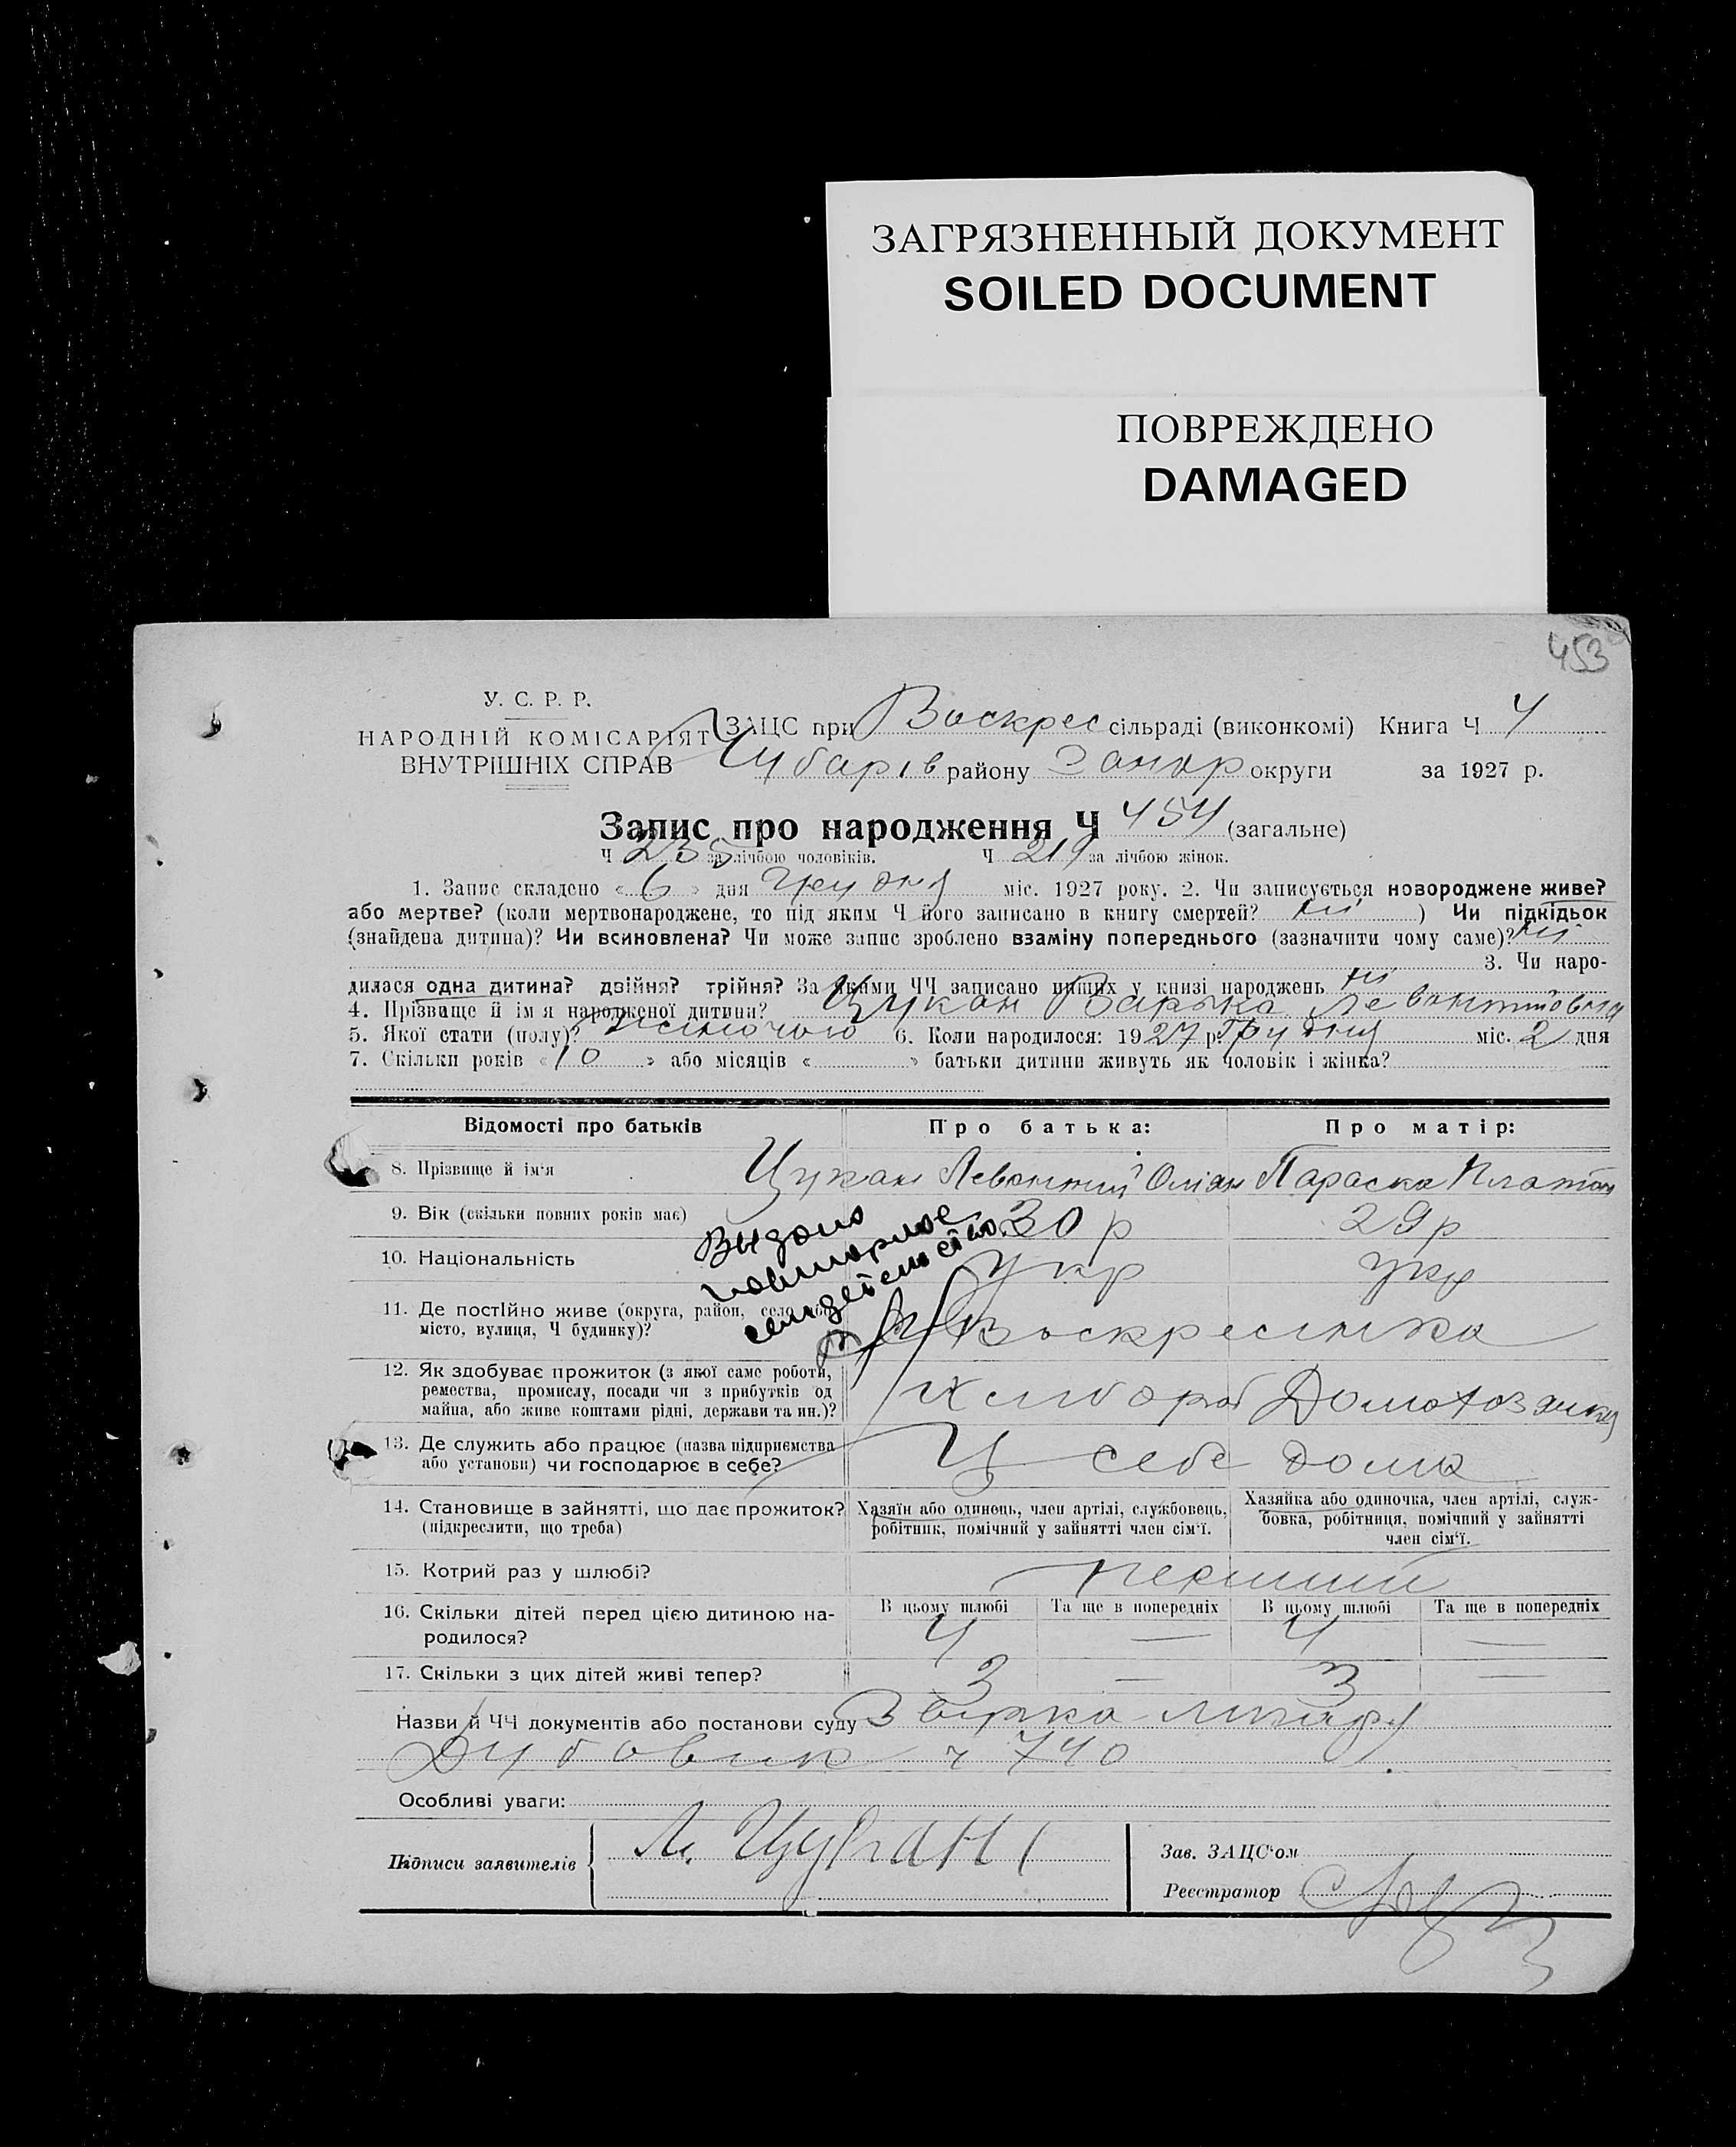 ЗАГРЯЗНЕННЫЙ ДОКУМЕНТ
SOILED DOCUMENT
ПОВРЕЖДЕНО
DAMAGED
453
У. С. Р. Р.
НАРОДНІЙ КОМІСАРІЯТ
ВНУТРІШНІХ СПРАВ
ЗАЦС при Воскрес сільраді (виконкомі) Книга Ч 4
Чубарів району Запор округи за 1927 р.
Запис про народження Ч 454 (загальне)
Ч 235 за лічбою чоловіків. Ч 219 за лічбою жінок.
1. Запис складено « 6 » дня Грудня міс. 1927 року. 2. Чи записується новороджене живе?
або мертве? (коли мертвонароджене, то під яким Ч його записано в книгу смертей? ні ) Чи підкідьок
(знайдена дитина)? Чи всиновлена? Чи може запис зроблено взаміну попереднього (зазначити чому саме)? ні
3. Чи наро-
дилася одна дитина? двійня? трійня? За якими ЧЧ записано инших у книзі народжень ні
4. Прізвище й ім'я народженої дитини? Цукан Варька Левонтіовна
5. Якої стати (полу)? жіночого 6. Коли народилося: 1927 р. Грудня міс. 2 дня
7. Скільки років « 10 » або місяців « » батьки дитини живуть як чоловік і жінка?
Відомості про батьків Про батька: Про матір:
8. Прізвище й ім'я Цукан Левонтий Оміян Параска Платон
9. Вік (скільки повних років має) 30 р 29 р
Выдано
повторное
свидетельство
10. Національність Укр Укр
11. Де постійно живе (округа, район, село або
місто, вулиця, Ч будинку)? Воскресінка
12. Як здобуває прожиток (з якої саме роботи,
ремества, промислу, посади чи з прибутків од
майна, або живе коштами рідні, держави та ин.)? Хлібороб Домохозяйка
13. Де служить або працює (назва підприємства
або установи) чи господарює в себе? У себе дома
14. Становище в зайнятті, що дає прожиток?
(підкреслити, що треба)
Хазяїн або одинець, член артілі, службовець,
робітник, помічний у зайнятті член сім'ї.
Хазяйка або одиночка, член артілі, служ-
бовка, робітниця, помічний у зайнятті
член сім'ї.
15. Котрий раз у шлюбі? перший
16. Скільки дітей перед цією дитиною на-
родилося?
В цьому шлюбі Та ще в попередніх В цьому шлюбі Та ще в попередніх
4 — 4 —
17. Скільки з цих дітей живі тепер? 3 — 3 —
Назви й ЧЧ документів або постанови суду Звірка лікару
Дубовик ч 740
Особливі уваги:
Підписи заявителів Л. Цукан
Зав. ЗАЦС'ом
Реєстратор